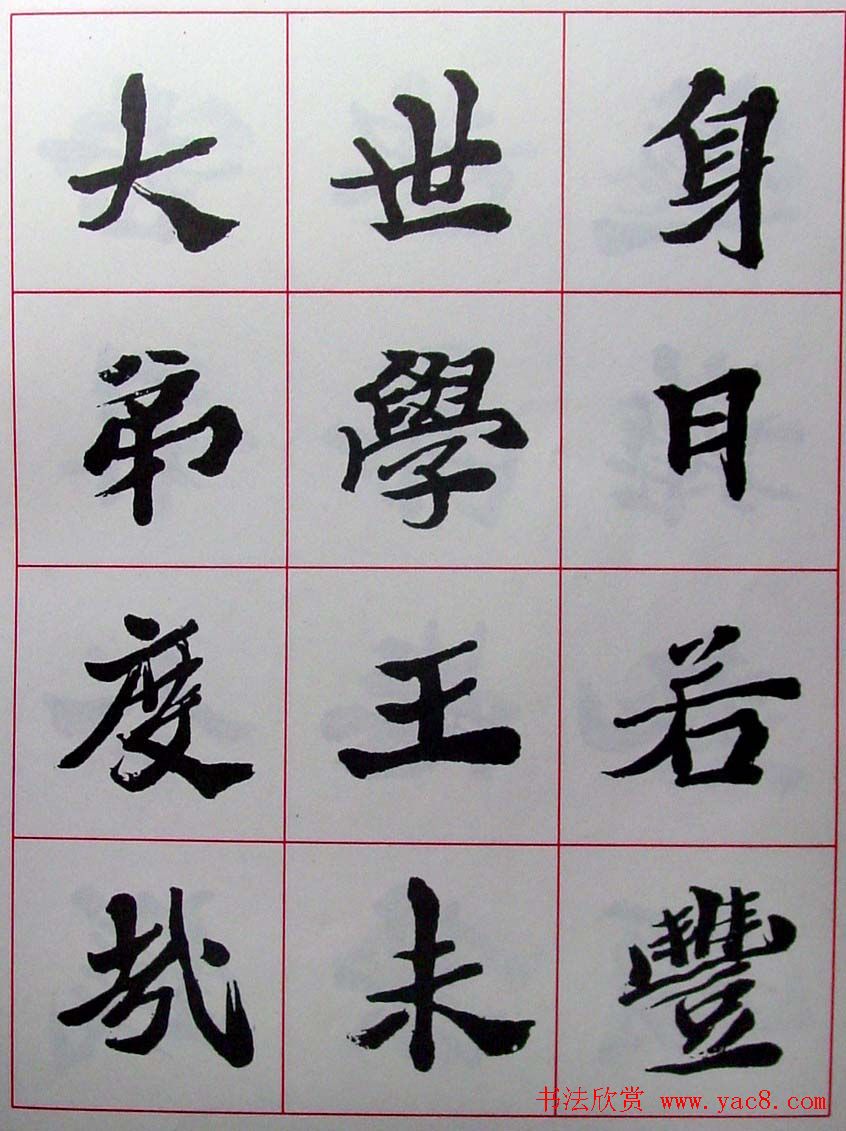 身目若豐
世學王未
大弟度
书法欣赏 www.yac8.com